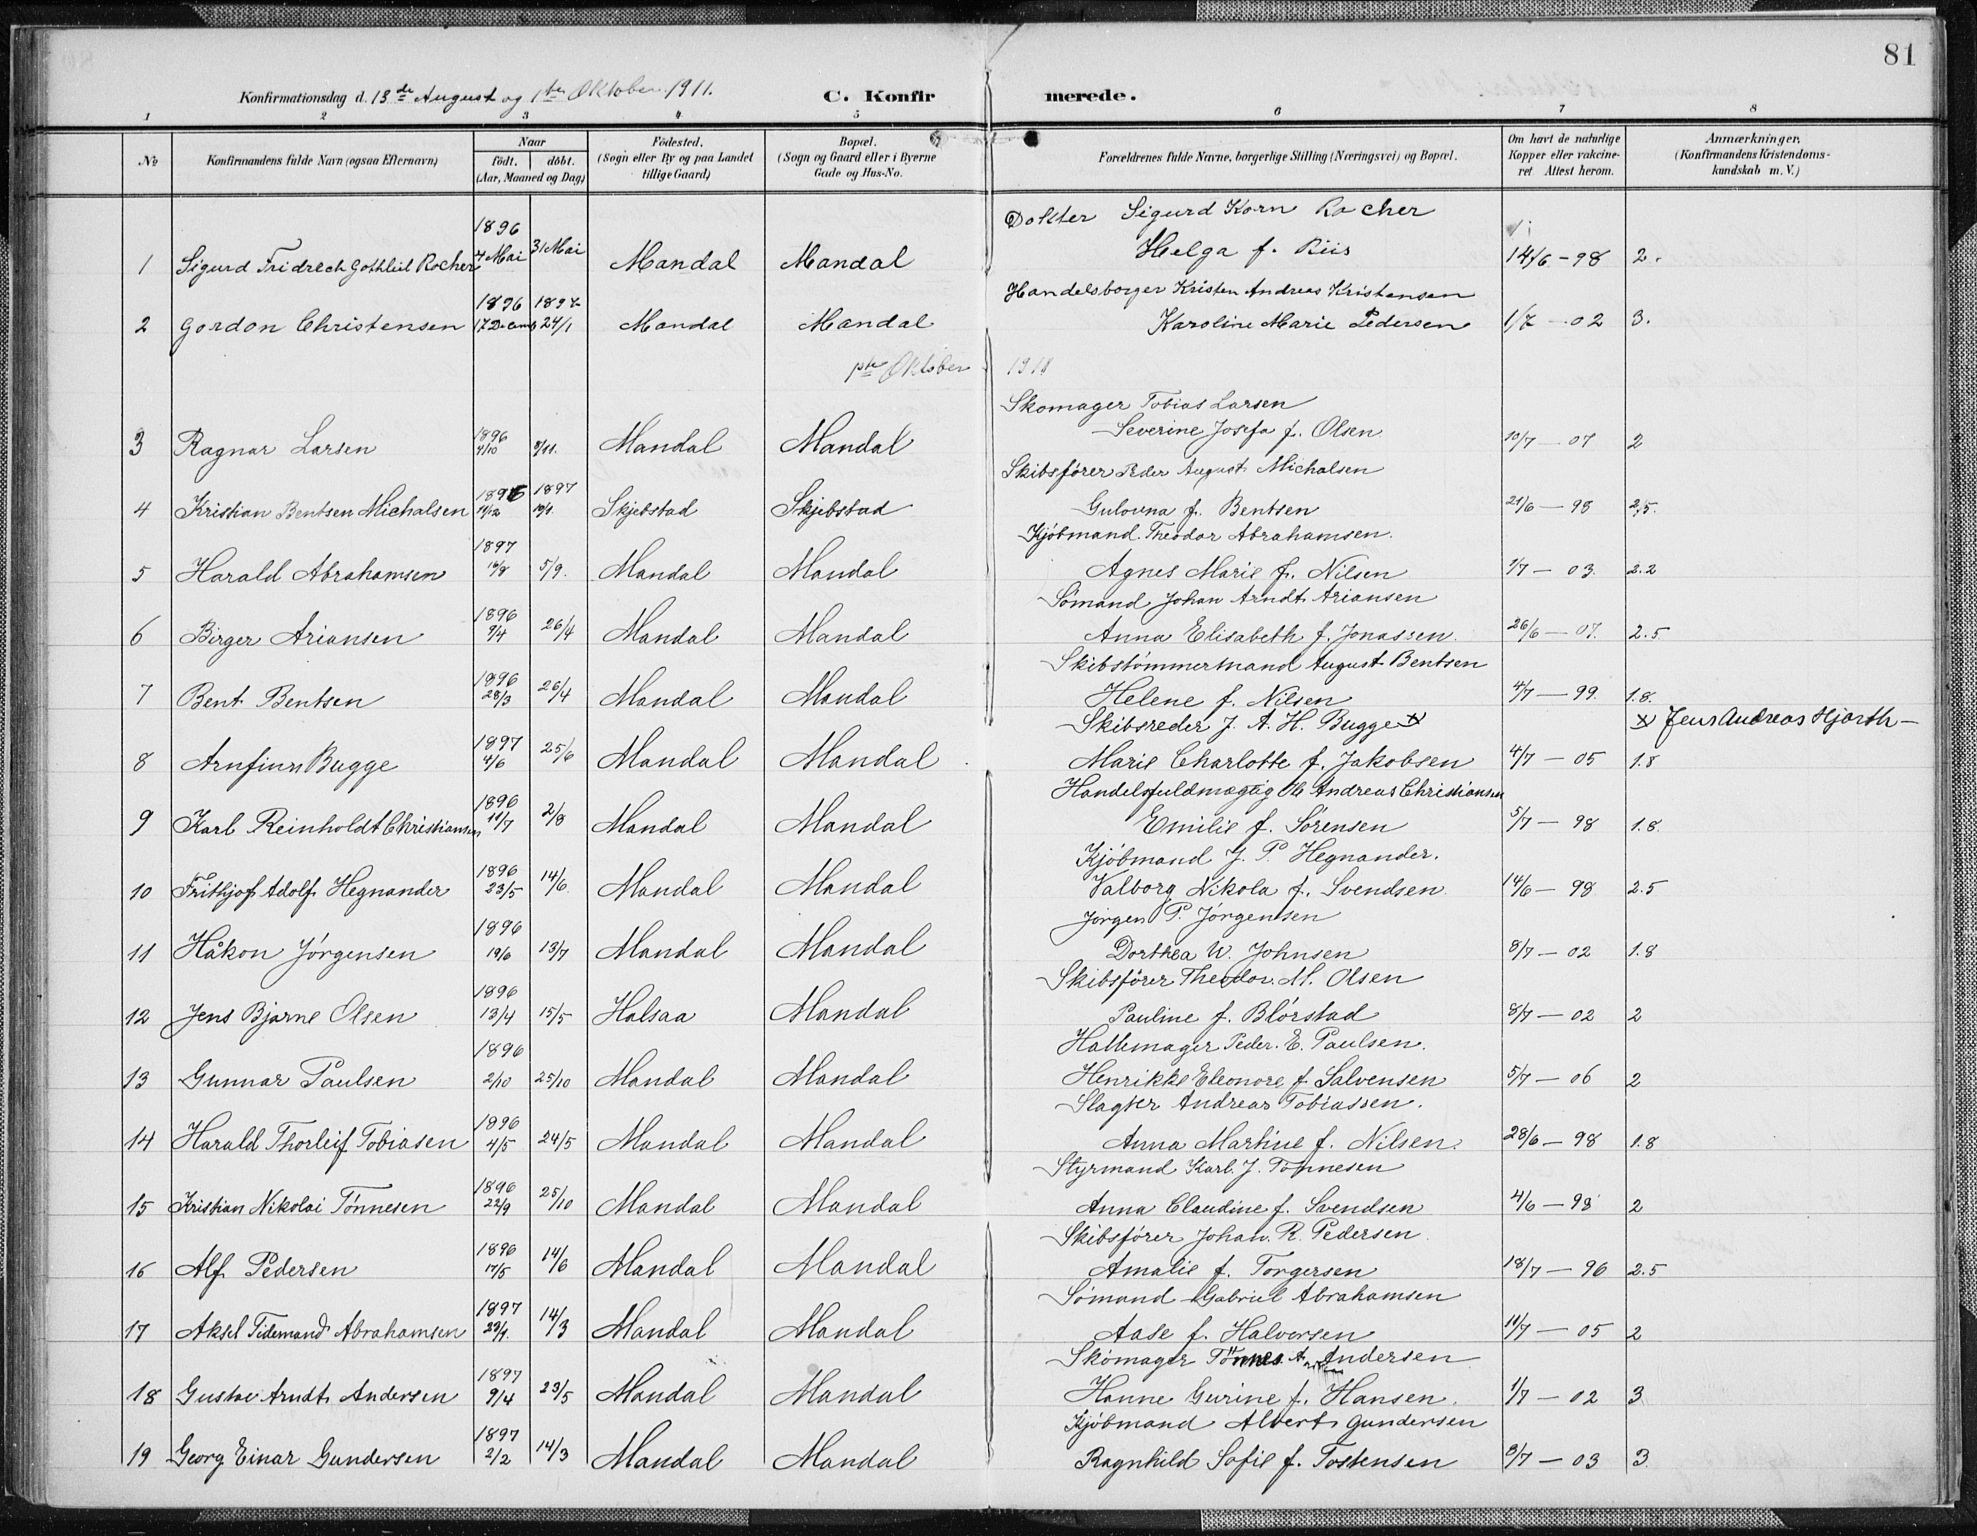 81
Konfirmationsdag d. 13de August og 1ste Oktober 1911. C. Konfirmerede.
1 2 3 4 5 6 7 8
No Konfirmandens fulde Navn (ogsaa Efternavn) Naar født. døbt. (Aar, Maaned og Dag) Fødested. (Sogn eller By og paa Landet tillige Gaard) Bopæl. (Sogn og Gaard eller i Byerne Gade og Hus-No. Forældrenes fulde Navne, borgerlige Stilling (Næringsvei) og Bopæl. Om havt de naturlige Kopper eller vakcineret Attest herom. Anmærkninger. (Konfirmandens Kristendomskundskab m. V.)
1896 Dokter Sigurd Korn Rocher
1 Sigurd Fridrech Gothleil Rocher 7 Mai 31 Mai Mandal Mandal Helga f. Riis 14/6 - 98 2.
1896 1897 Handelsborger Kristen Andreas Kristensen
2 Gordon Christensen 17 Decemb 24/1 Mandal Mandal Karoline Marie Pedersen 1/7 - 02 3.
Oktober 1911
Skomager Tobias Larsen
3 Ragnar Larsen 1896 4/10 8/11. Mandal Mandal Severine Josefa f. Olsen 10/7 - 07 2
Skibsfører Peder August Michalsen
4 Kristian Bentsen Michalsen 1896 14/12 1897 10/1. Skjebstad Skjebstad Gulovna f. Bentsen 21/6 - 98 2,5.
1897 Kjøbmand Theodor Abrahamsen.
5 Harald Abrahamsen 16/8 5/9. Mandal Mandal Agnes Marie f. Nilsen 1/7 - 03. 2.2
1896 Sømand Johan Arndt Ariansen
6 Birger Ariansen 9/4 26/4 Mandal Mandal Anna Elisabeth f. Jonassen. 26/6 - 07. 2.5
1896 Skibstømmermand August Bentsen
7 Bent Bentsen 28/3 26/4 Mandal Mandal Helene f. Nilsen 4/7 - 99. 1.8.
Skibsreder J. A. H. Bugge x x Jens Andreas Hjorth -
8 Arnfinn Bugge 1897 4/6 25/6 Mandal Mandal Marie Charlotte f. Jakobsen 4/7 - 05 1.8
1896 Handelsfuldmægtig Andreas Christiansen
9 Karl Reinholdt Christiansen 11/7 2/8 Mandal Mandal Emilie f. Sørensen 5/7 - 98 1.8.
1896 Kjøbmand J. P. Hegnander.
10 Frithjof Adolf Hegnander 23/5 14/6 Mandal Mandal Valborg Nikola f. Svendsen 14/6 - 98 2.5
1896 Jørgen P. Jørgensen
11 Håkon Jørgensen 19/6 13/7 Mandal Mandal Dorthea W. Johnsen 8/7 - 02 1.8
1896 Skibsfører Theodor M. Olsen
12 Jens Bjarne Olsen 13/4 15/5 Halsaa Mandal Pauline f. Blørstad 8/7 - 02 2
1896 Hattemager Peder E. Paulsen.
13 Gunnar Paulsen 2/10 25/10 Mandal Mandal Henrikke Eleonore f Salvensen 5/7 - 06 2
1896 Slagter Andreas Tobiassen.
14 Harald Thorleif Tobiasen 4/5 24/5 Mandal Mandal Anna Martine f. Nilsen. 28/6 - 98 1.8
1896 Styrmand Karl J. Tønnesen
15 Kristian Nikolai Tønnesen 22/9 25/10 Mandal Mandal Anna Claudine f. Svendsen 4/6 - 98 2
1896 Skibsfører Johan R. Pedersen
16 Alf Pedersen 17/5 14/6 Mandal Mandal Amalie f. Torgersen 18/7 - 96 2.5
1897 Sømand Gabriel Abrahamsen
17 Aksel Tidemand Abrahamsen 23/1. 14/3 Mandal Mandal Aase f. Halvorsen 11/7 - 05 2
1897 Skomager Tönnes A. Andersen
18 Gustav Arndt Andersen 9/4 23/5 Mandal Mandal Hanne Gurine f. Hansen. 1/7 - 02 3
1897 Kjøbmand Alvert Gundersen
19 Georg Einar Gundersen 2/2 14/3 Mandal Mandal Ragnhild Sofie f. Tostensen 3/7 - 03 3.